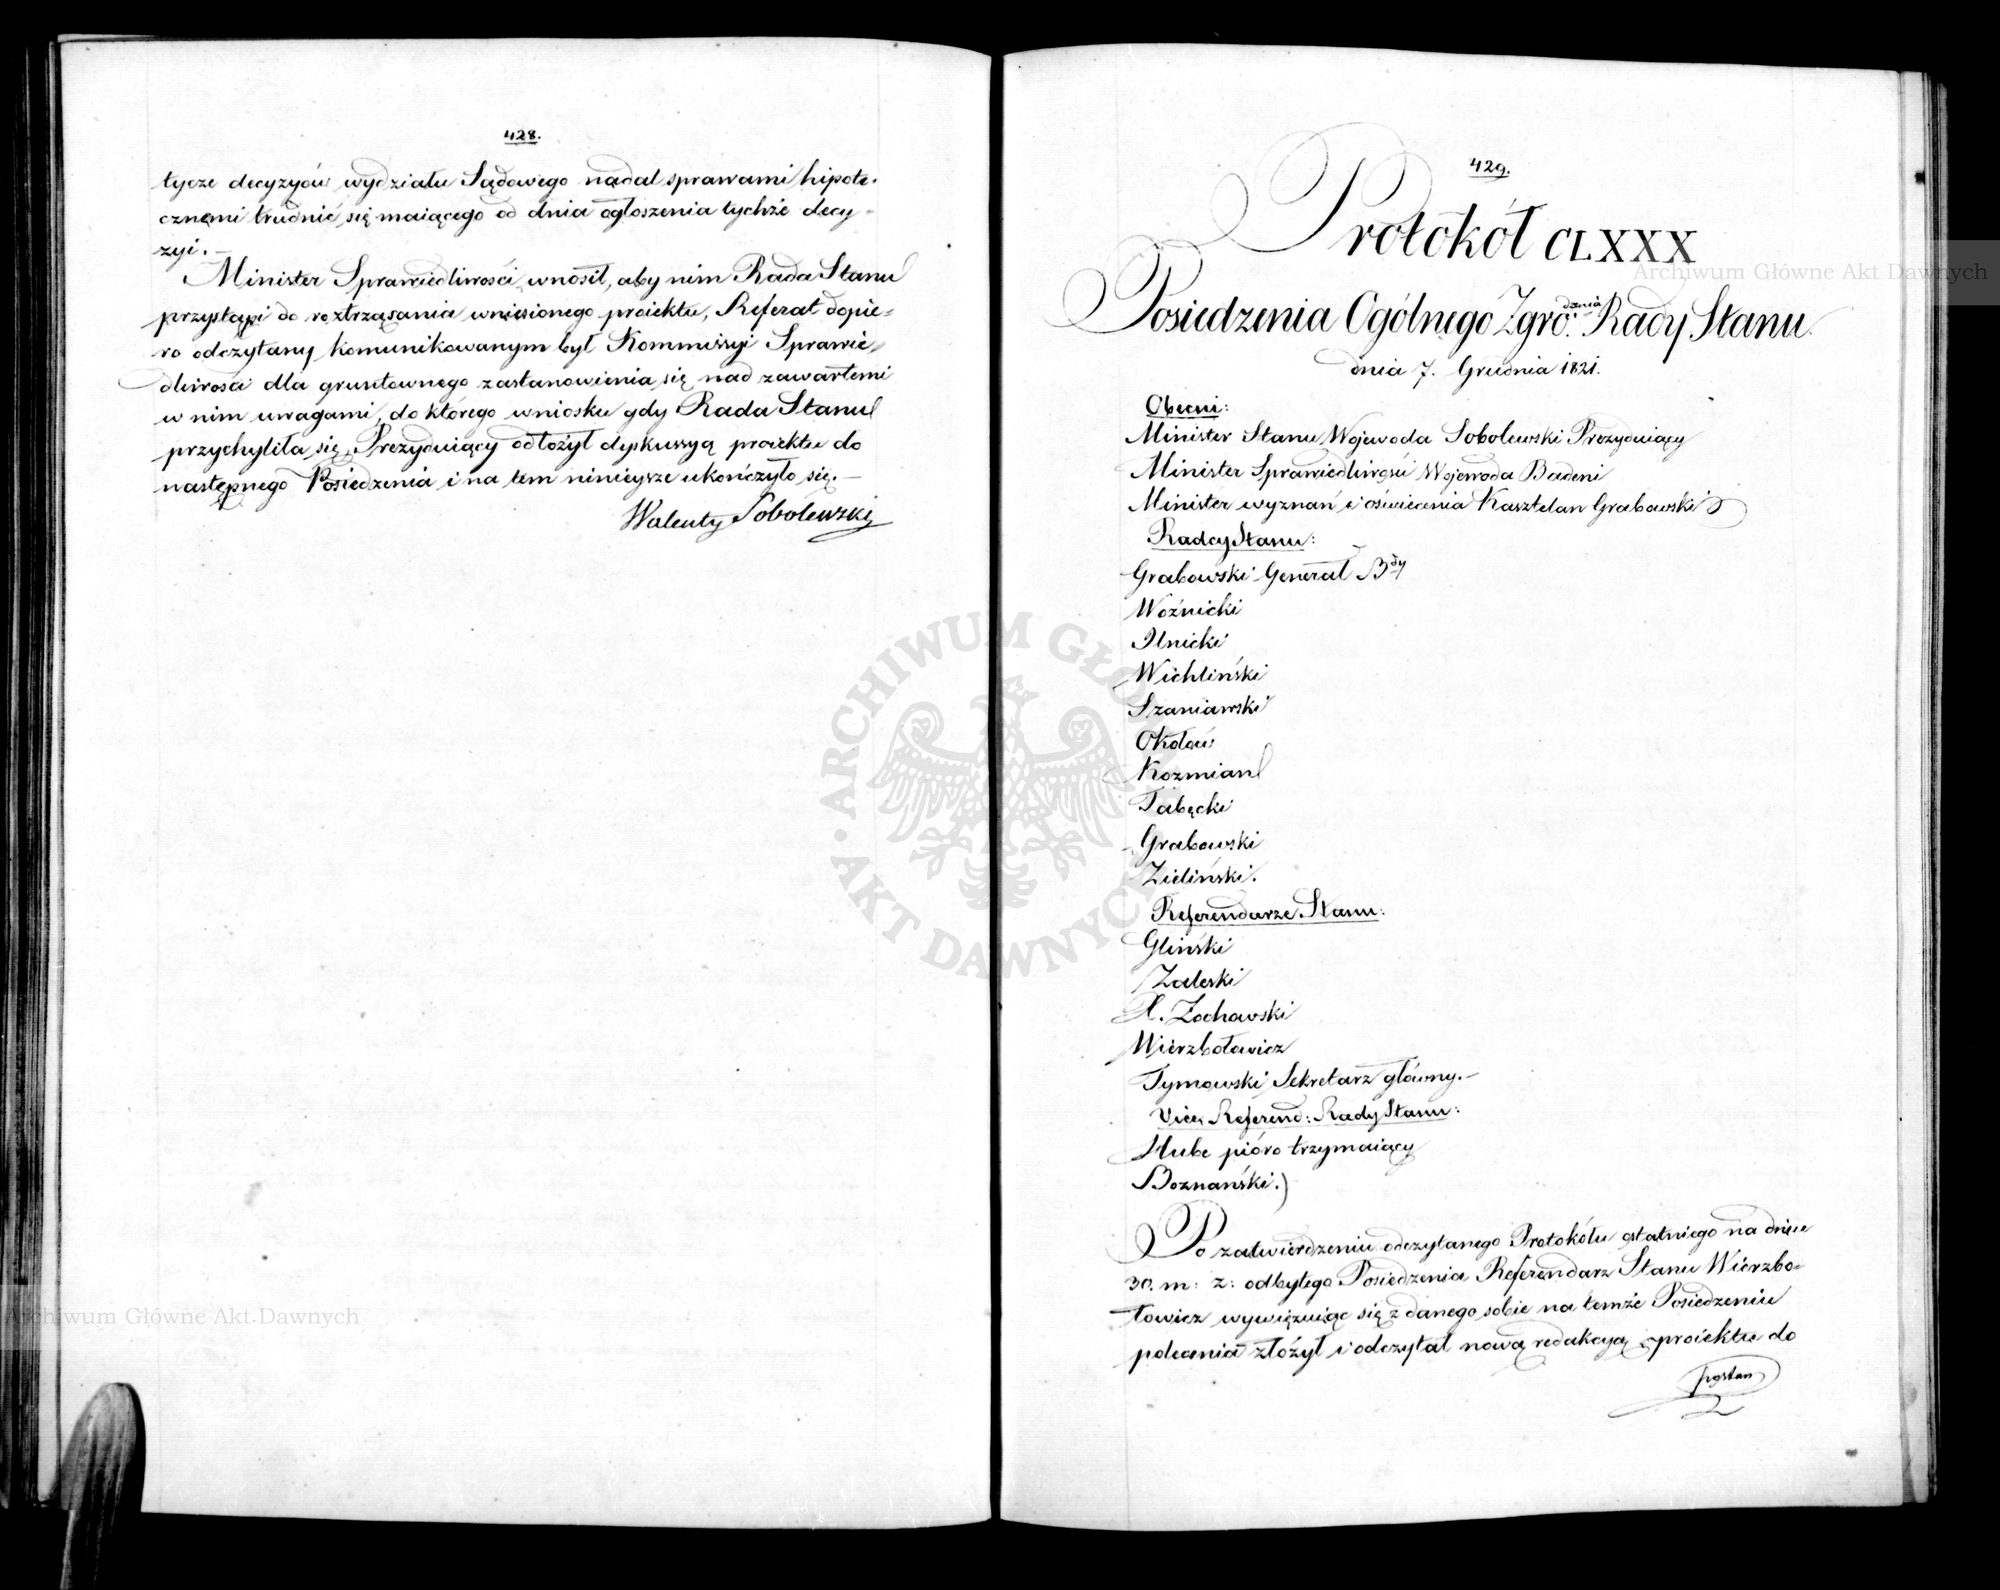 428.
tycze decyzyów wydziału Sądowego nadal sprawami hipote-
cznemi trudnić się maiącego od dnia ogłoszenia tychże decy-
zyi. —
Minister Sprawiedliwości wnosił, aby nim Rada Stanu
przystąpi do roztrząsania wniesionego proiektu, Referat dopie-
ro odczytany komunikowanym był Kommissyi Sprawie-
dliwości dla gruntownego zastanowienia się nad zawartemi
w nim uwagami, do którego wniosku gdy Rada Stanu
przychyliła się, Prezyduiący odłożył dyskussyą proiektu do
następnego Posiedzenia i na tem ninieysze ukończyło się. —
Walenty Sobolewski
429.
Protokół CLXXX
Posiedzenia Ogólnego Zgro:dzenia Rady Stanu
dnia 7. Grudnia 1821.
Obecni:
Minister Stanu Wojewoda Sobolewski Prezyduiący
Minister Sprawiedliwości Wojewoda Badeni
Minister wyznań i oświecenia Kasztelan Grabowski
Radcy Stanu:
Grabowski Generał Bdy
Woźnicki
Ilnicki
Wichliński
Szaniawski
Okołów
Kozmian
Tabęcki
Grabowski
Zieliński.
Referendarze Stanu:
Gliński
Zaleski
X. Żochowski
Wierzbołowicz
Tymowski Sekretarz główny. —
Vice Referend: Rady Stanu:
Hube pióro trzymaiący
Boznański.
Po zatwierdzeniu odczytanego Protokółu ostatniego na dniu
30. m: z: odbytego Posiedzenia Referendarz Stanu Wierzbo-
łowicz wywięzuiąc się z danego sobie na temże Posiedzeniu
polecenia złożył i odczytał nową redakcyą proiektu do
postan
Archiwum Główne Akt Dawnych
Archiwum Główne Akt Dawnych
ARCHIWUM GŁÓWNE AKT DAWNYCH